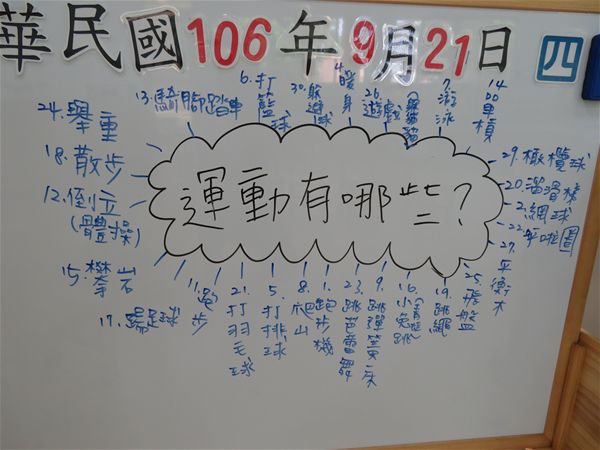 華民國106年9月21日 四
運動有哪些?
24.舉重
18.散步
12.倒立
(體操)
15.攀岩
17.踢足球
13.騎腳踏車
6.打籃球
30.躲避球
4.暖身
26.遊戲
7.游泳
14.吊單槓
29.橄欖球
20.溜滑梯
2.網球
22.呼啦圈
27.平衡木
25.飛盤
19.跳繩
16.小兔跳
9.跳彈簧床
23.跳芭蕾舞
1.跑步機
8.爬山
5.打排球
21.打羽毛球
11.跑步